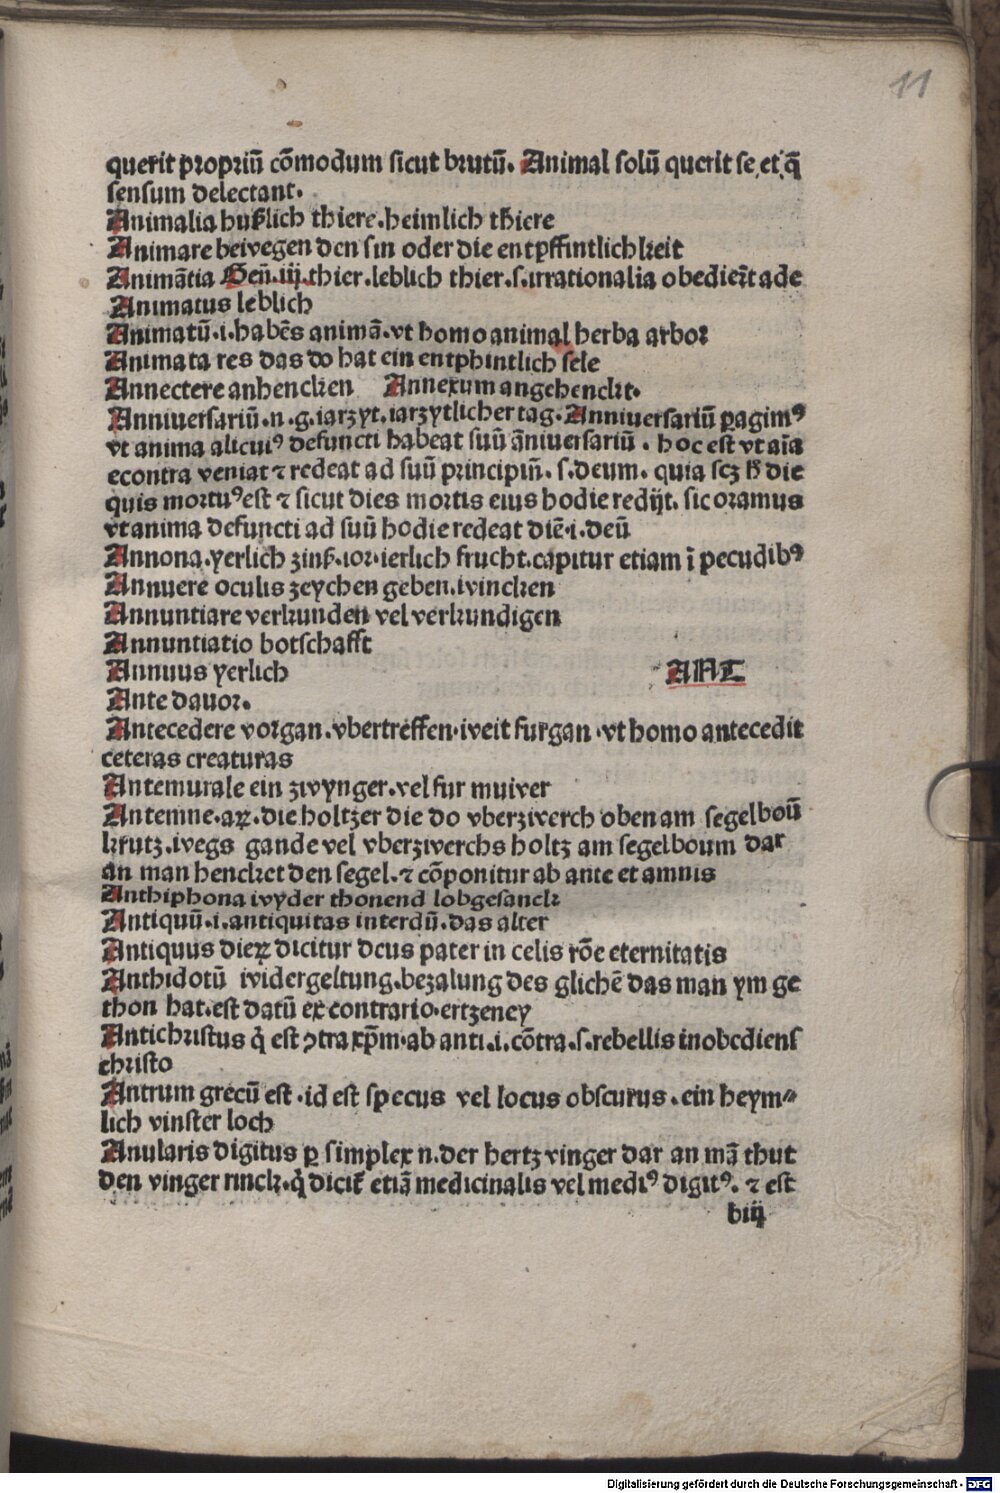 11
querit propriū cōmodum sicut brutū. Animal solū querit se, et, q̄
sensum delectant.
Animalia hußlich thiere. heimlich thiere
Animare beivegen den sin oder die entpffintlichkeit
Animātia Gen̄. iij. thier. leblich thier. s. irrationalia obedien̄t ade
Animatus leblich
Animatū. i. habēs animā. vt homo animal herba arbor
Animata res das do hat ein entphintlich sele
Annectere anhencken    Annexum angehenckt.
Anniuersariū. n. g. iarzyt. iarzytlicher tag. Anniuersariū ꝑagimꝰ
vt anima alicuiꝰ defuncti habeat suū āniuersariū. hoc est vt aīa
econtra veniat ⁊ redeat ad suū principiū. s. deum. quia scꝫ h̄ die
quis mortuꝰ est ⁊ sicut dies mortis eius hodie redijt. sic oramus
vt anima defuncti ad suū hodie redeat diē. i. deū
Annona. yerlich zinß. ior. ierlich frucht. capitur etiam ī pecudibꝰ
Annuere oculis zeychen geben. ivincken
Annuntiare verkunden vel verkundigen
Annuntiatio botschafft
Annuus yerlich
ANT
Ante dauor.
Antecedere vorgan. vbertreffen. iveit furgan. vt homo antecedit
ceteras creaturas
Antemurale ein zwynger. vel fur muiver
Antemne. aꝝ. die holtzer die do vberziverch oben am segelboū
krutz. ivegs gande vel vberziverchs holtz am segelboum dar
an man hencket den segel. ⁊ cōponitur ab ante et amnis
Anthiphona ivyder thonend lobgesanck
Antiquū. i. antiquitas interdū. das alter
Antiquus dieꝝ dicitur deus pater in celis rōe eternitatis
Anthidotū ividergeltung. bezalung des glichē das man ym ge
thon hat. est datū ex contrario. ertzeney
Antichristus q̇ est ꝯtra xp̄m. ab anti. i. cōtra. s. rebellis inobediens
christo
Antrum grecū est. id est specus vel locus obscurus. ein heym⸗
lich vinster loch
Anularis digitus ꝑ simplex n. der hertz vinger dar an mā thut
den vinger rinck. q̇ dicit̄ etiā medicinalis vel mediꝰ digitꝰ. ⁊ est
biij
Digitalisierung gefördert durch die Deutsche Forschungsgemeinschaft - DFG